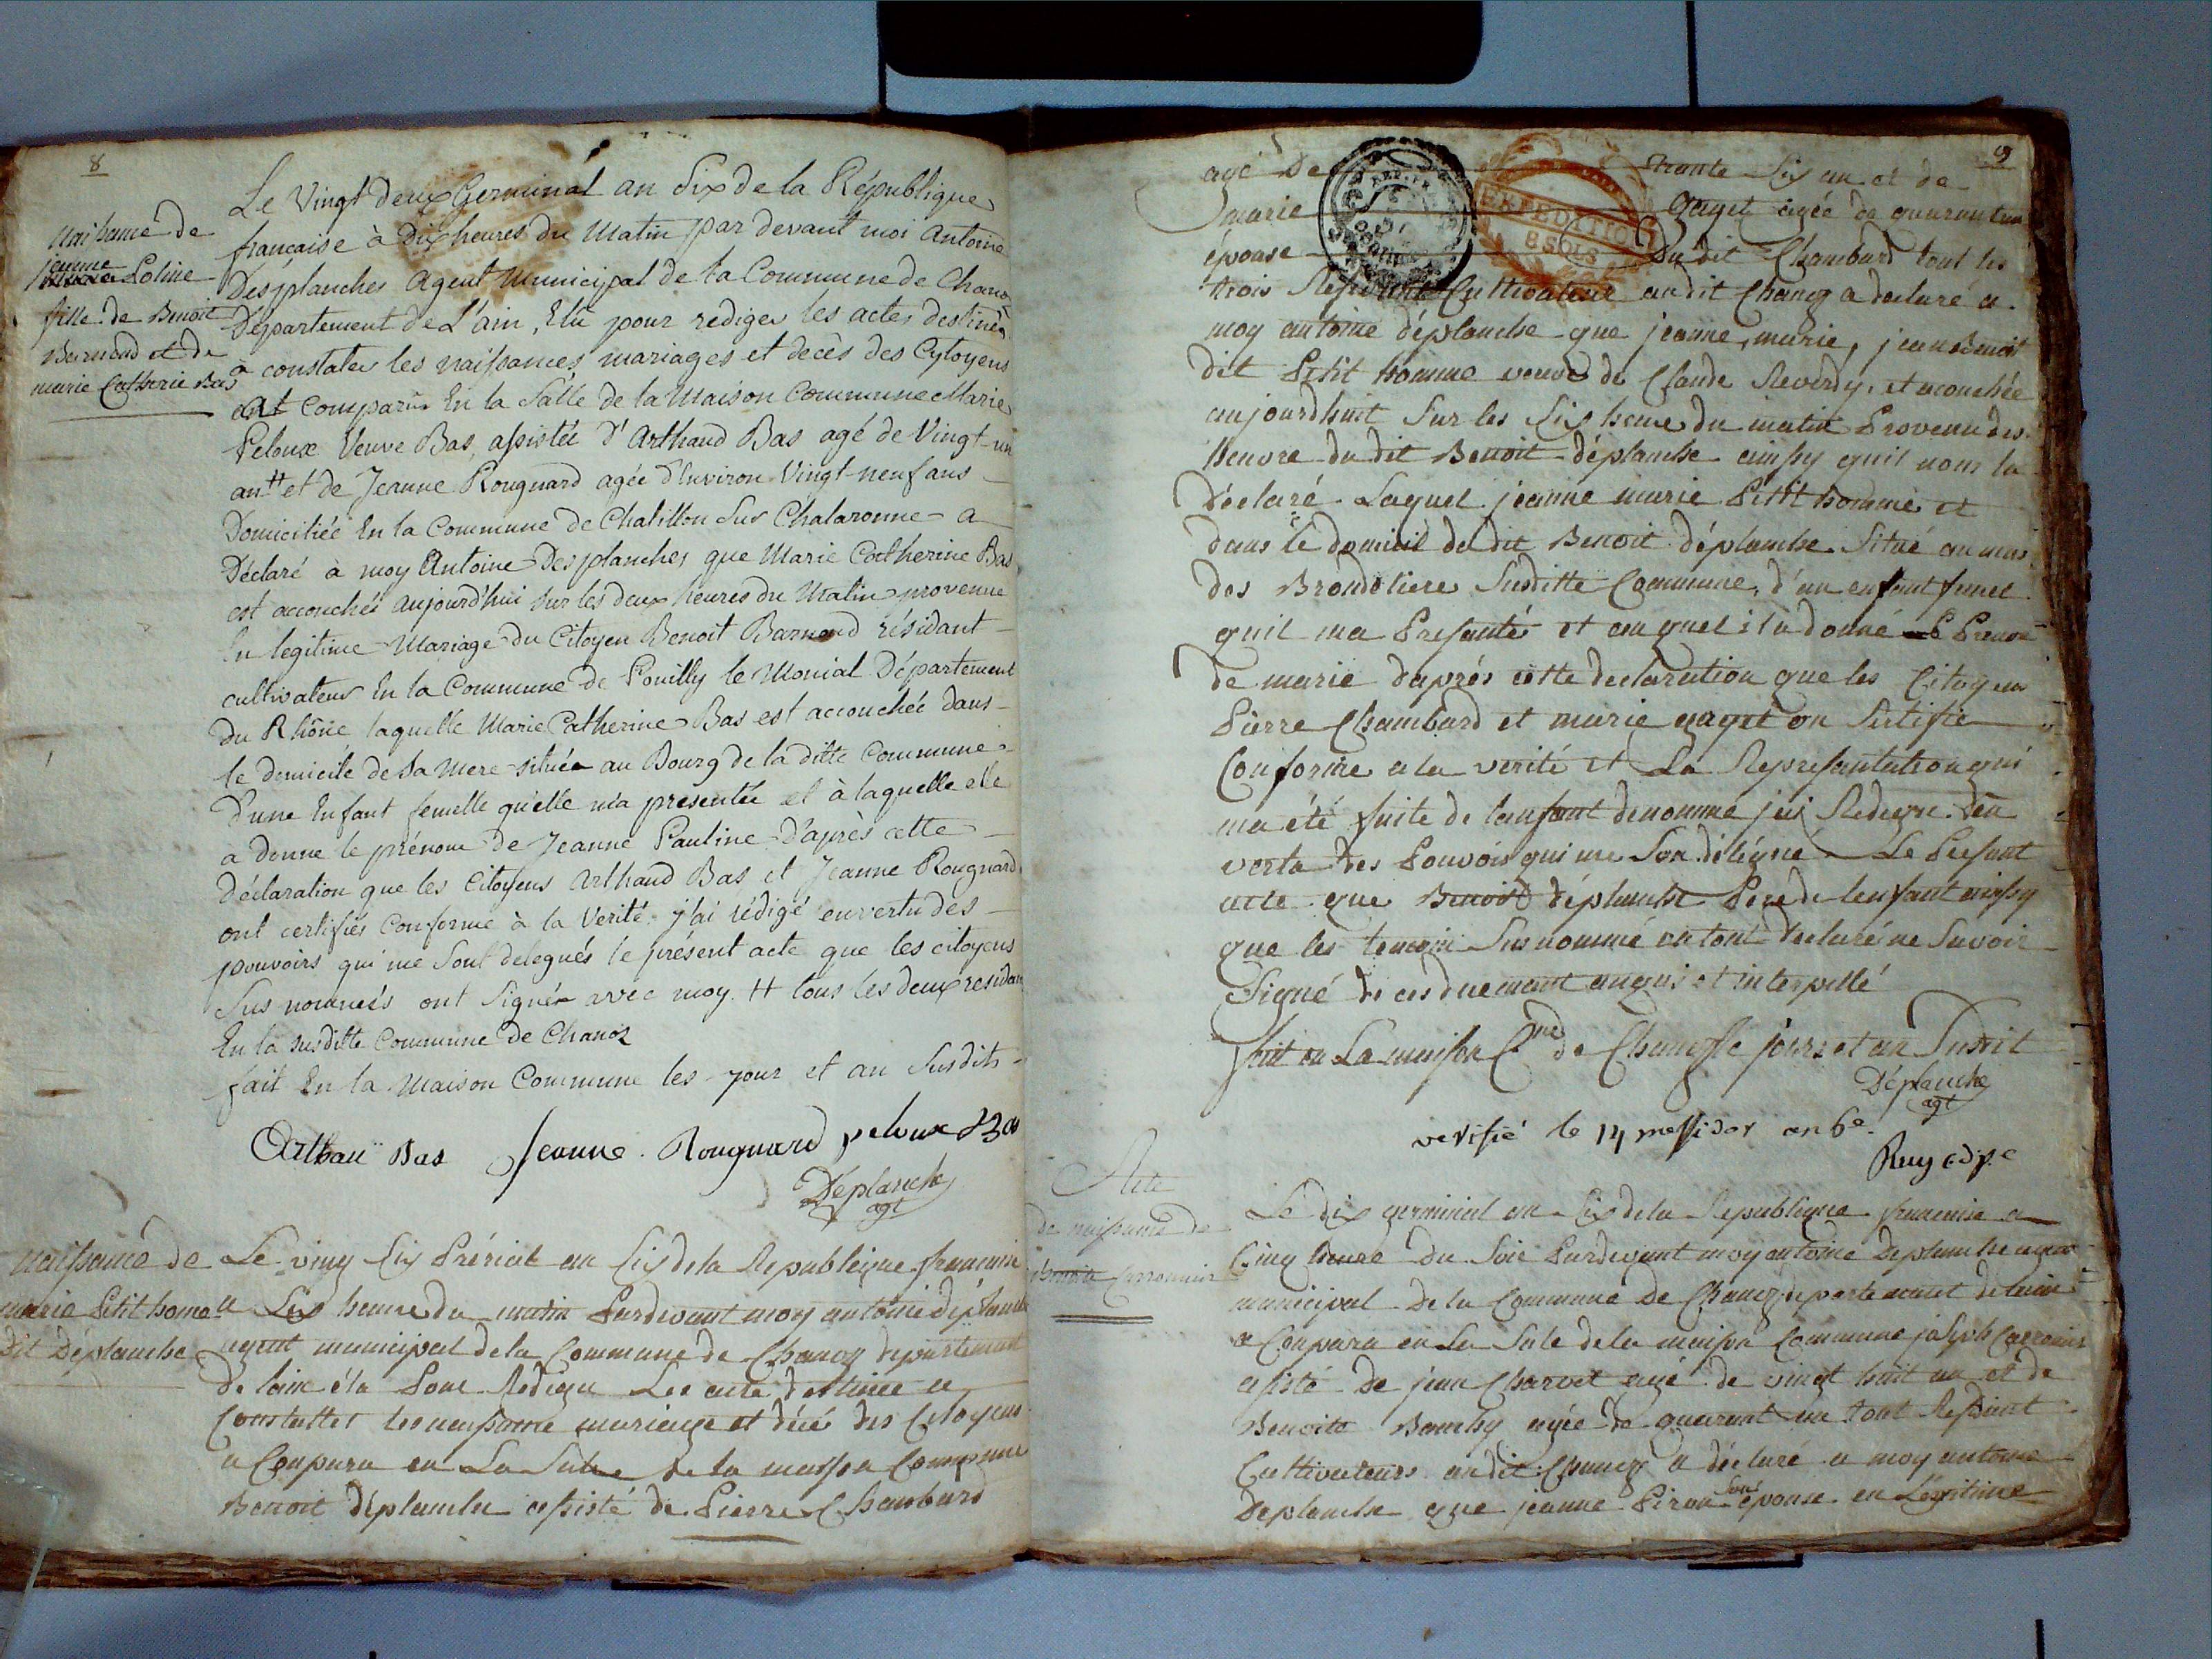 8
Le Vingt deux Germinal an Six de la République
francaise à Dix heures du Matin par devant moi Antoine
Desplanches Agent Municipal de la Commune de Chanoz
Département de L'ain, Elû pour rediger les actes destinés
à constater les naissances, mariages et decès des Cytoyens
est comparu En la Salle de la Maison Commune Marie
Peloux Veuve Bas, assistée d'Arthaud Bas agé de Vingt-un
an # et de Jeanne Rougnard agée d'Environ Vingt-neuf ans
Domiciliée En la Commune de Chatillon Sur Chalaronne a
Déclaré à moy Antoine Desplanches que Marie Catherine Bas
est accouchée aujourd'hui sur les deux heures du Matin provenue
En legitime Mariage du Citoyen Benoit Barnoud résidant
cultivateur En la Commune de Pouilly le Monial Département
du Rhône laquelle Marie Catherine Bas est accouchée dans
le domicile de sa Mere située au Bourg de la ditte Commune
D'une Enfant femelle qu'elle m'a presentée et à laquelle elle
a donné le prénom de Jeanne Pauline D'après cette
Déclaration que les Citoyens Arthaud Bas et Jeanne Rougnard
ont certifiés Conforme à la Verité j'ai rédigé en vertu des
pouvoirs qui me Sont delegués le présent acte que les citoyens
Sus nommés ont Signés avec moy. # tous les deux residant
En la susditte Commune de Chanoz
fait En la Maison Commune les jour et an Susdits
naissance de
jeanne Poline
fille de Benoit
Barnoud et de
marie Catherie Bas
Arthau Bas Jeanne Rougnard peloux
Déplanche
agt
naissance de
marie Petit home
dit Déplanche
Le ving Six Prérial an Six de la Republique francaise
a Six heure du matin Pardevant moy antoine déplanche
agent municipal de la Commune de Chanoz département
de lain élu Pour Rediger Les acte destinée a
Constatter les naissance mariage et décé des Citoyens
a Conparu en La Salle de la maison Commune
Benoit déplanche assisté de Pierre Chambard
9
agé de trante Six an et de
marie gaget agée de quarante
épouse du dit Chambard tout les
trois Résidant Cultivateur audit Chanoz a declaré a
moy antoine déplanche que jeanne, marie, jean Benoit
dit Petit homme veuve de Claude Reverdy, et acouchée
aujourdhuit Sur les Six heure du matin Provenu des
heuvre du dit Benoit déplanche ainsy quil nous la
déclaré Laquel jeanne marie Petit homme et
dans le domicil du dit Benoit déplanche Situé au mas
des Brondeliere Susditte Commune, d'un enfant femel
quil ma Presanté et auquel il a donné le Prenon
de marie daprés cette declaration que les Citoyens
Pierre Chambard et marie gaget on Sertifié
Conforme a la verité et La Represantation qui
ma été faite de lanfant denommé jai Redigée en
vertu des Pouvoir qui me Son délégué Le Presant
acte que Benoit déplanche Pere de lenfant ainsy
que les temoin Susnommé on tout declaré ne Savoir
Signé de ce duement anquis et interpellé
fait en La maison Cne de Chanoz le jours et an Susdit
Déplanche
agt
verifié le 14 messidor an 6e
Acte
de naissance de
benoite Carronnier
Le dix germinal an Six de la Republique francaise a
Cinq heure du Soir Pardevant moy antoine Deplanche agent
municipal De la Commune De Chanoz departement de lain
a Conparu en La Sale de la maison Commune joseph Carronier
asisté De jean Charvet agé de vingt huit an et de
Benoite Bouchy agée de quarant un tout Résidant
Cultivateurs audit Chanoz a déclaré a moy antoine
Deplanche que jeanne Piron Son épouse en Légitime